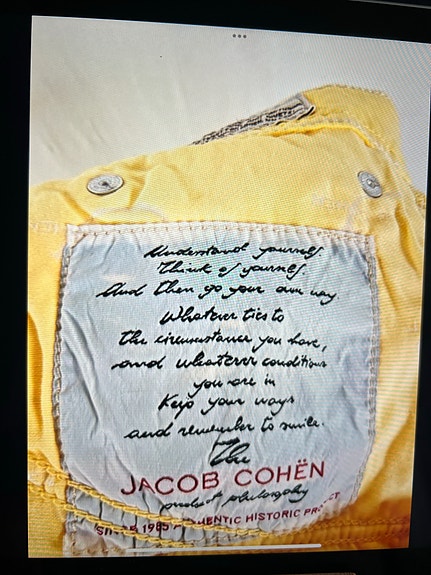 Understand yourself.
Think of yourself.
And then go your own way.
Whatever ties to
the circumstance you have,
and whatever conditions
you are in
Keep your ways
and remember to smile.
The
JACOB COHËN
product philosophy
SINCE 1985 AUTHENTIC HISTORIC PRODUCT